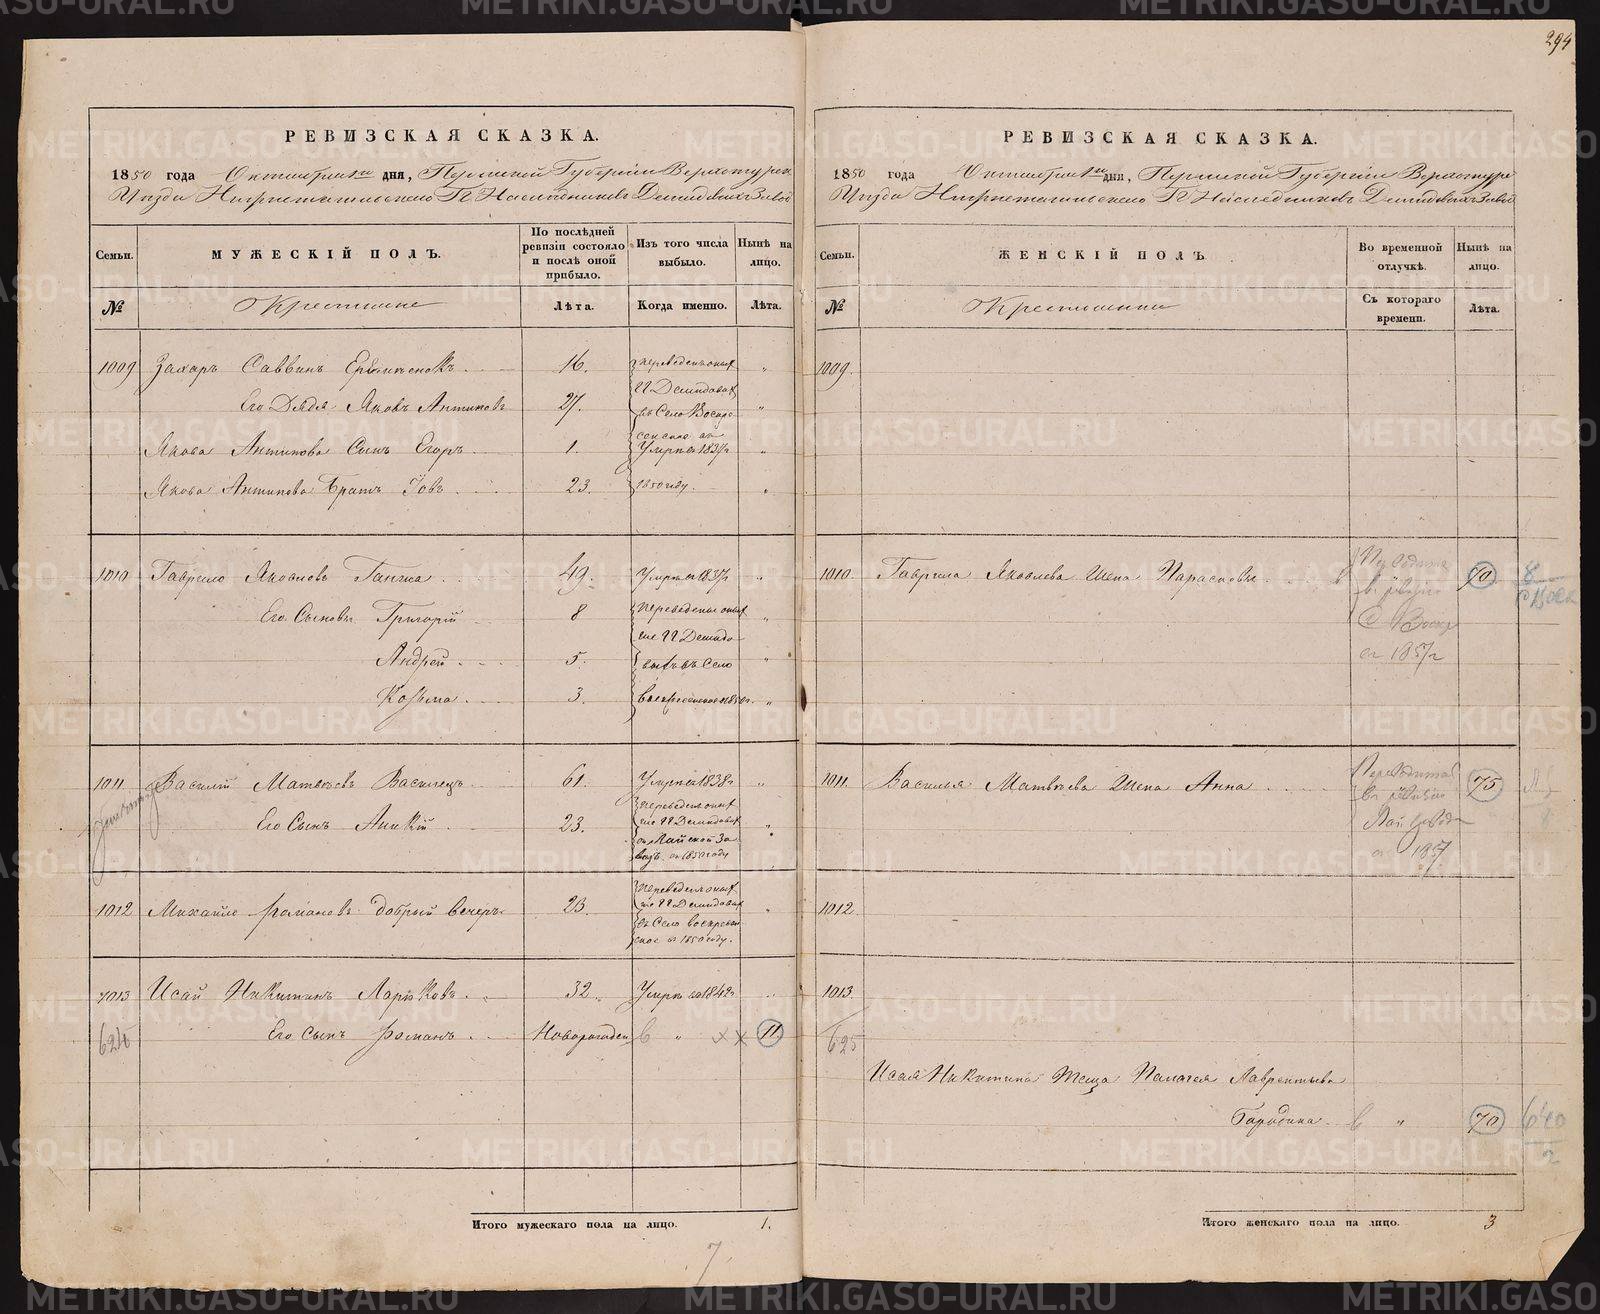 294
РЕВИЗСКАЯ СКАЗКА.
1850 года Октября дня, Пермской Губерніи Верхотурск
Уезда Нижнетагильскаго Гг Наследниковъ Демидовыхъ Завод
Семьи.
МУЖЕСКІЙ ПОЛЪ.
По послѣдней ревизіи состояло и послѣ оной прибыло.
Изъ того числа выбыло.
Нынѣ на лицо.
№
Крестьяне
Лѣта.
Когда именно.
Лѣта.
1009 Захаръ Саввинъ 16. переведенъ
Его Дядя Яковъ Антиповъ 27. ГГ Демидовых въ Село Воскре
Якова Антипова Сынъ Егоръ 1. Умеръ въ 1837г
Якова Антипова Братъ Іовъ 23. 1850 году.
1010 Гаврило Яковлевъ Ганжа 49. Умеръ въ 1837г "
Его Сыновья Григорій 8 Переведены
Андрей 5. ГГ Демидо
выхъ въ Село
Козьма 3. Воскресенское 1850г. "
1011 Василій Матвѣевъ Василецъ 61. Умеръ въ 1838г "
Его Сынъ Аникій 23. переведенъ ГГ Демидовых Лайской Завод въ 1850 году
1012 Михайло Романовъ Добрый вечеръ 23. переведенъ ГГ Демидовых въ Село Воскресенское въ 1850 году.
1013 Исай Никитинъ Ларьковъ 32 Умеръ въ 1842г
Его Сынъ Романъ Новорожден " 11
Итого мужескаго пола на лицо. 1.
7
РЕВИЗСКАЯ СКАЗКА.
1850 года Октября дня, Пермской Губерніи Верхотурс
Уезда Нижнетагильскаго Гг Наследниковъ Демидовыхъ Завод
Семьи.
ЖЕНСКІЙ ПОЛЪ
Во временной отлучкѣ.
Нынѣ на лицо.
№
Крестьянки
Съ котораго времени.
Лѣта.
1009.
1010. Гаврила Яковлева Жена Парасковья 70
С Воскр
1857г
1011. Василья Матвѣева Жена Анна 75
Лай завода
1857
1012.
1013.
625
Исая Никитина Теща Пелагея Лаврентьева
Бородина " 70 640
2
Итого женскаго пола на лицо. 3
METRIKI.GASO-URAL.RU